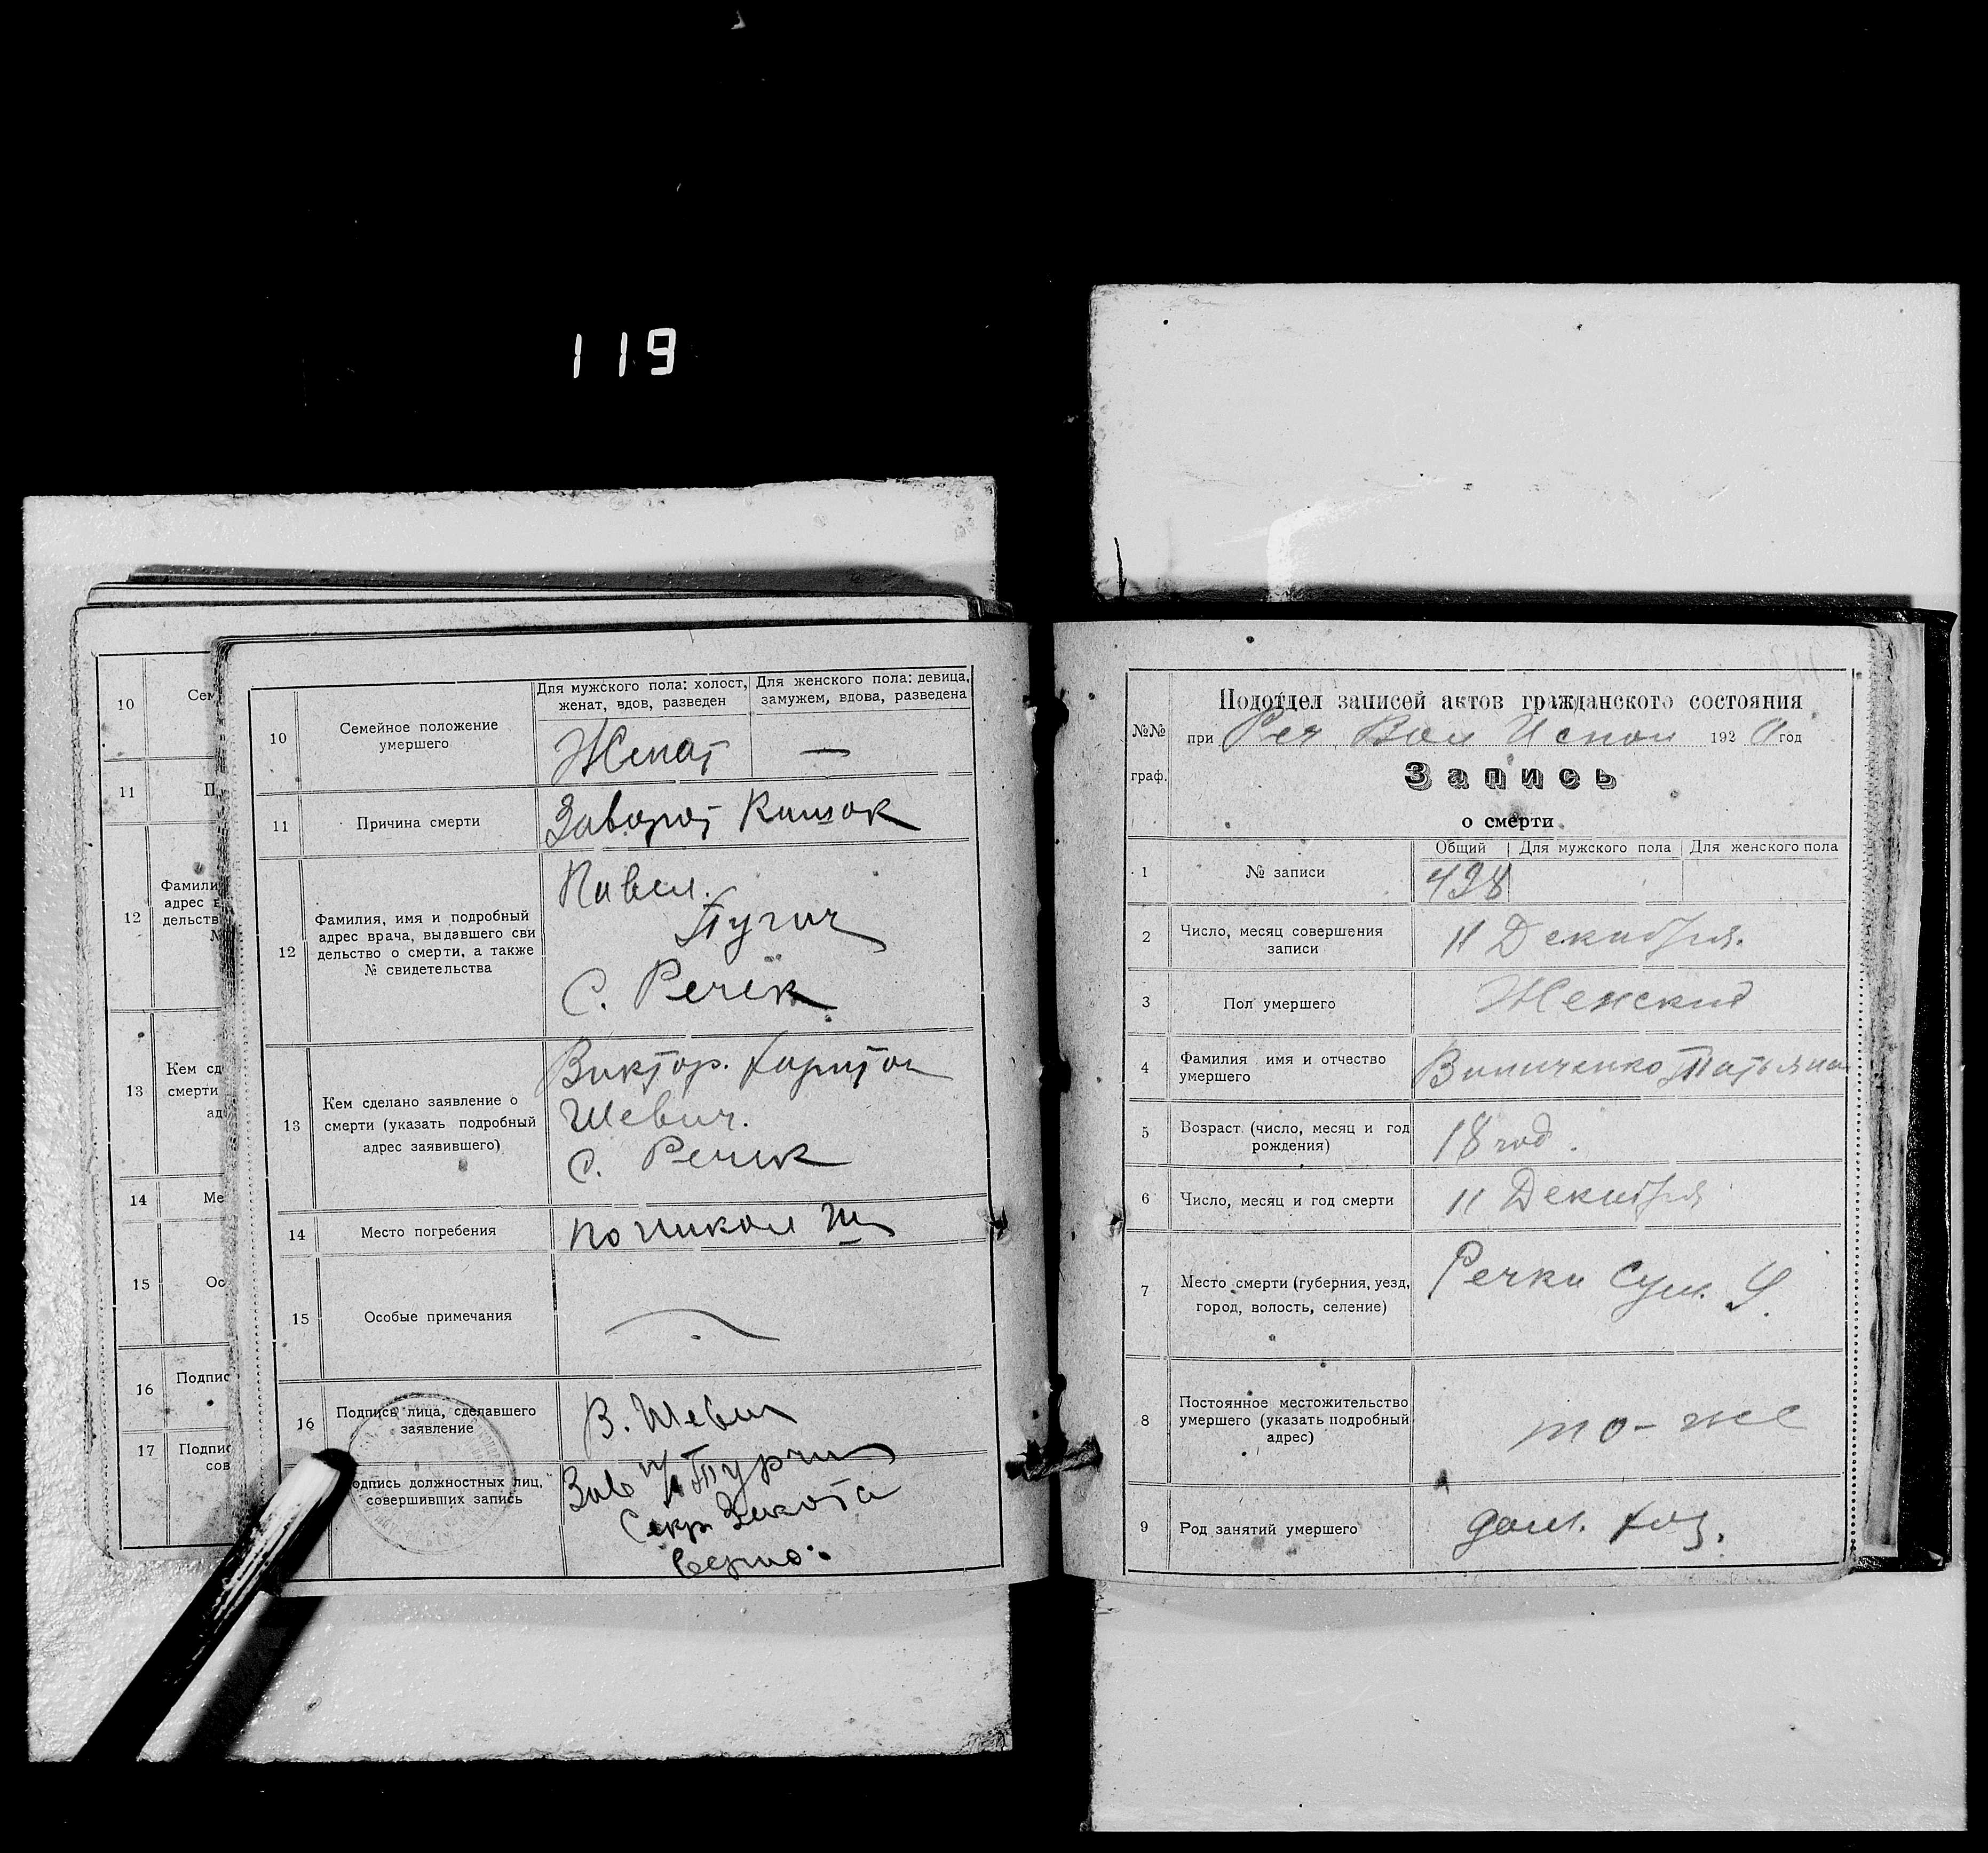 119
10
Сем
11
П
12
Фамили
адрес в
дельств
№
13
Кем сд
смерти
ад
14
Ме
15
Ос
16
Подпис
17
Подпис
сов
10
Семейное положение
умершего
Для мужского пола: холост,
женат, вдов, разведен
Для женского пола: девица,
замужем, вдова, разведена
Женат
—
11
Причина смерти
Заворот Кишок
12
Фамилия, имя и подробный
адрес врача, выдавшего сви
дельство о смерти, а также
№ свидетельства
Павел.
С. Речек
13
Кем сделано заявление о
смерти (указать подробный
адрес заявившего)
Виктор. Харитон
Шевич.
С. Речек
14
Место погребения
15
Особые примечания
16
Подпись лица, сделавшего
заявление
В. Шевич
одпись должностных лиц,
совершивших запись
Зав
Секр.
верно
№№
граф.
Подотдел записей актов гражданского состояния
при Реч Вол Испол 1920 год
Запись
о смерти
1
№ записи
Общий
Для мужского пола
Для женского пола
498
2
Число, месяц совершения
записи
11 Декабря.
3
Пол умершего
Женский
4
Фамилия имя и отчество
умершего
Виниченко Татьяна
5
Возраст (число, месяц и год
рождения)
18 год.
6
Число, месяц и год смерти
11 Декабря
7
Место смерти (губерния, уезд,
город, волость, селение)
Речки Сум. У.
8
Постоянное местожительство
умершего (указать подробный
адрес)
то-же
9
Род занятий умершего
дом. хоз.